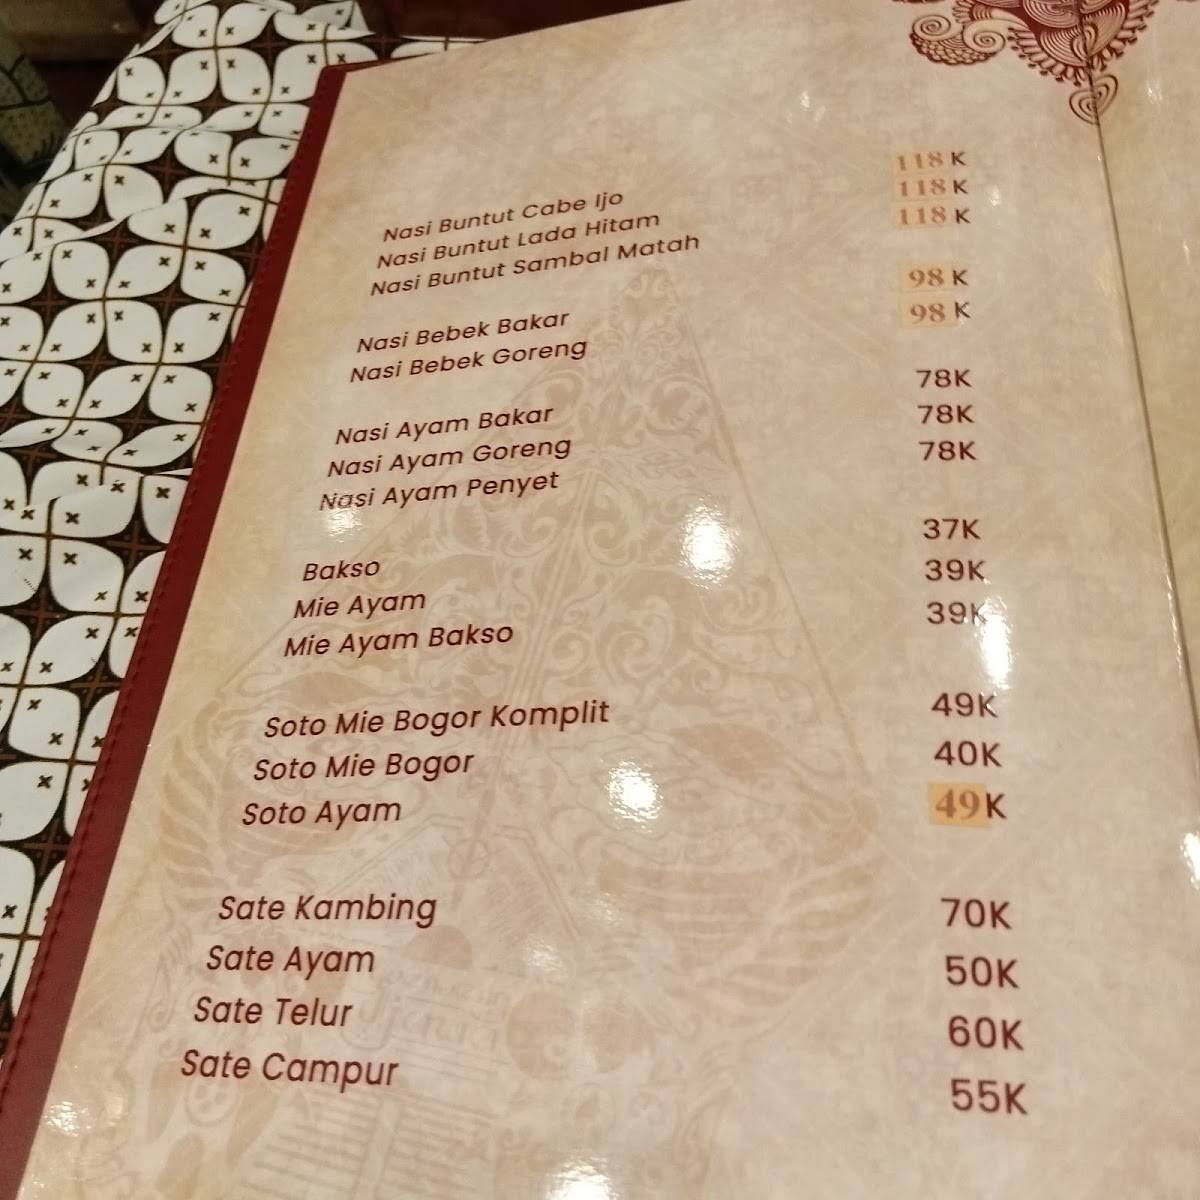 Nasi Buntut Cabe Ijo 118 K
Nasi Buntut Lada Hitam 118 K
Nasi Buntut Sambal Matah 118 K
Nasi Bebek Bakar 98 K
Nasi Bebek Goreng 98 K
Nasi Ayam Bakar 78K
Nasi Ayam Goreng 78K
Nasi Ayam Penyet 78K
Bakso 37K
Mie Ayam 39K
Mie Ayam Bakso 39K
Soto Mie Bogor Komplit 49K
Soto Mie Bogor 40K
Soto Ayam 49K
Sate Kambing 70K
Sate Ayam 50K
Sate Telur 60K
Sate Campur 55K